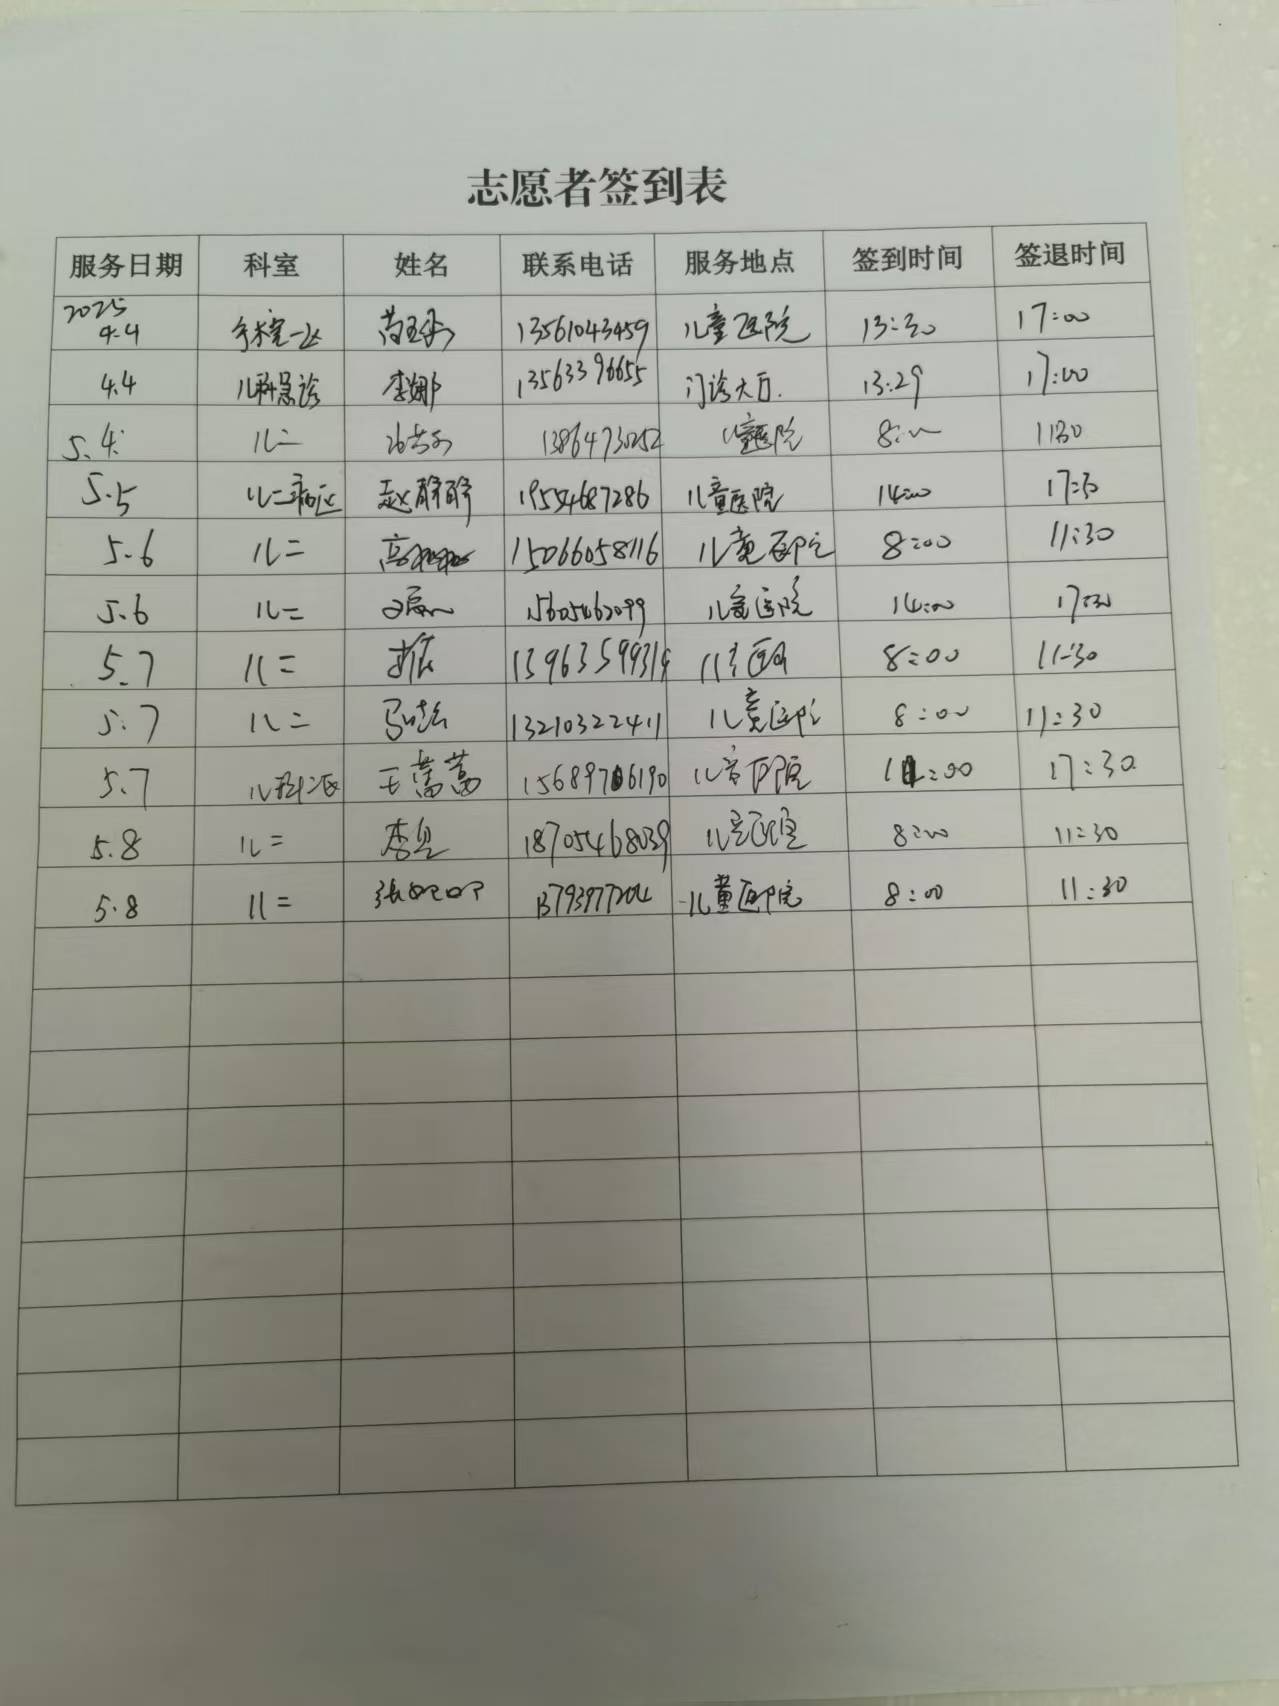 志愿者签到表
服务日期 科室 姓名 联系电话 服务地点 签到时间 签退时间
2025
4.4 手术室一区 13561043459 儿童医院 13:30 17:00
4.4 儿科急诊 李娜 13563396655 门诊大厅. 13:29 17:00
5.4 儿二 儿童医院 8:00 11:30
5.5 儿二病区 赵静静 19554687286 儿童医院 14:00 17:30
5.6 儿二 15066058116 儿童医院 8:00 11:30
5.6 儿二 15605462099 儿童医院 14:00 17:30
5.7 儿二 13963599319 8:00 11:30
5.7 儿二 13210322411 儿童医院 8:00 11:30
5.7 儿科二区 王蒿蒿 儿童医院 17:30
5.8 儿二 18705468039 儿童医院 8:00 11:30
5.8 儿二 13793977204 儿童医院 8:00 11:30